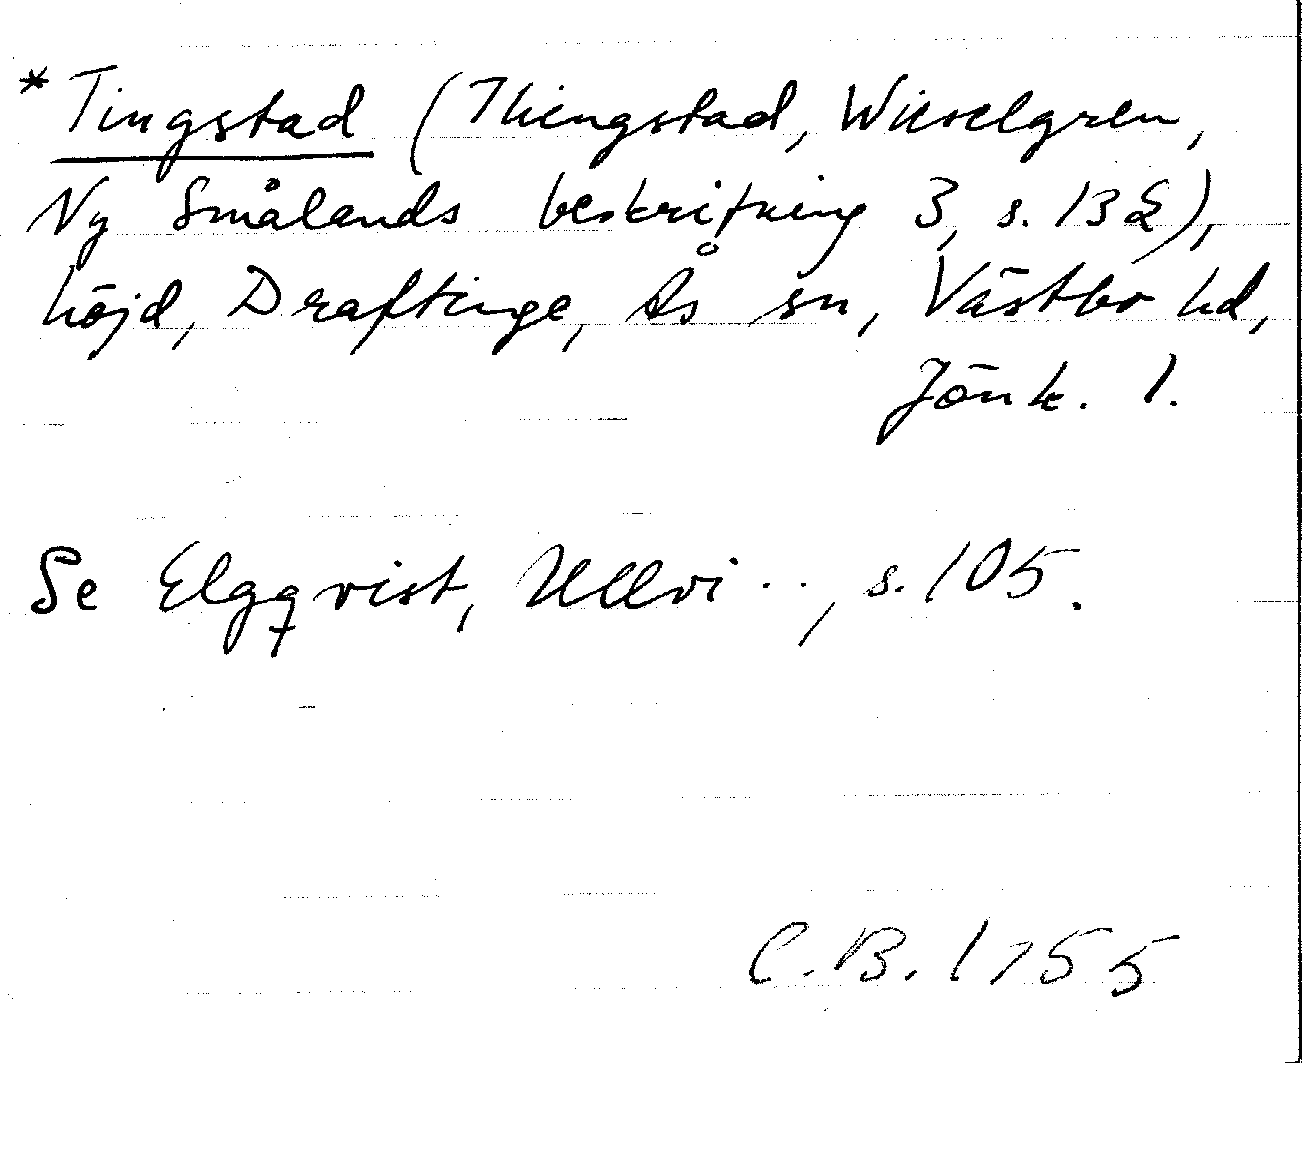 *Tingstad (Thengstad, Wieselgren,
Ny Smålands beskrifning 3, s. 132),
höjd, Draftinge, Ås sn, Västbo hd,
Jönk. l.
Se Elgqvist, Ullvi .., s. 105.
C.B. 1955